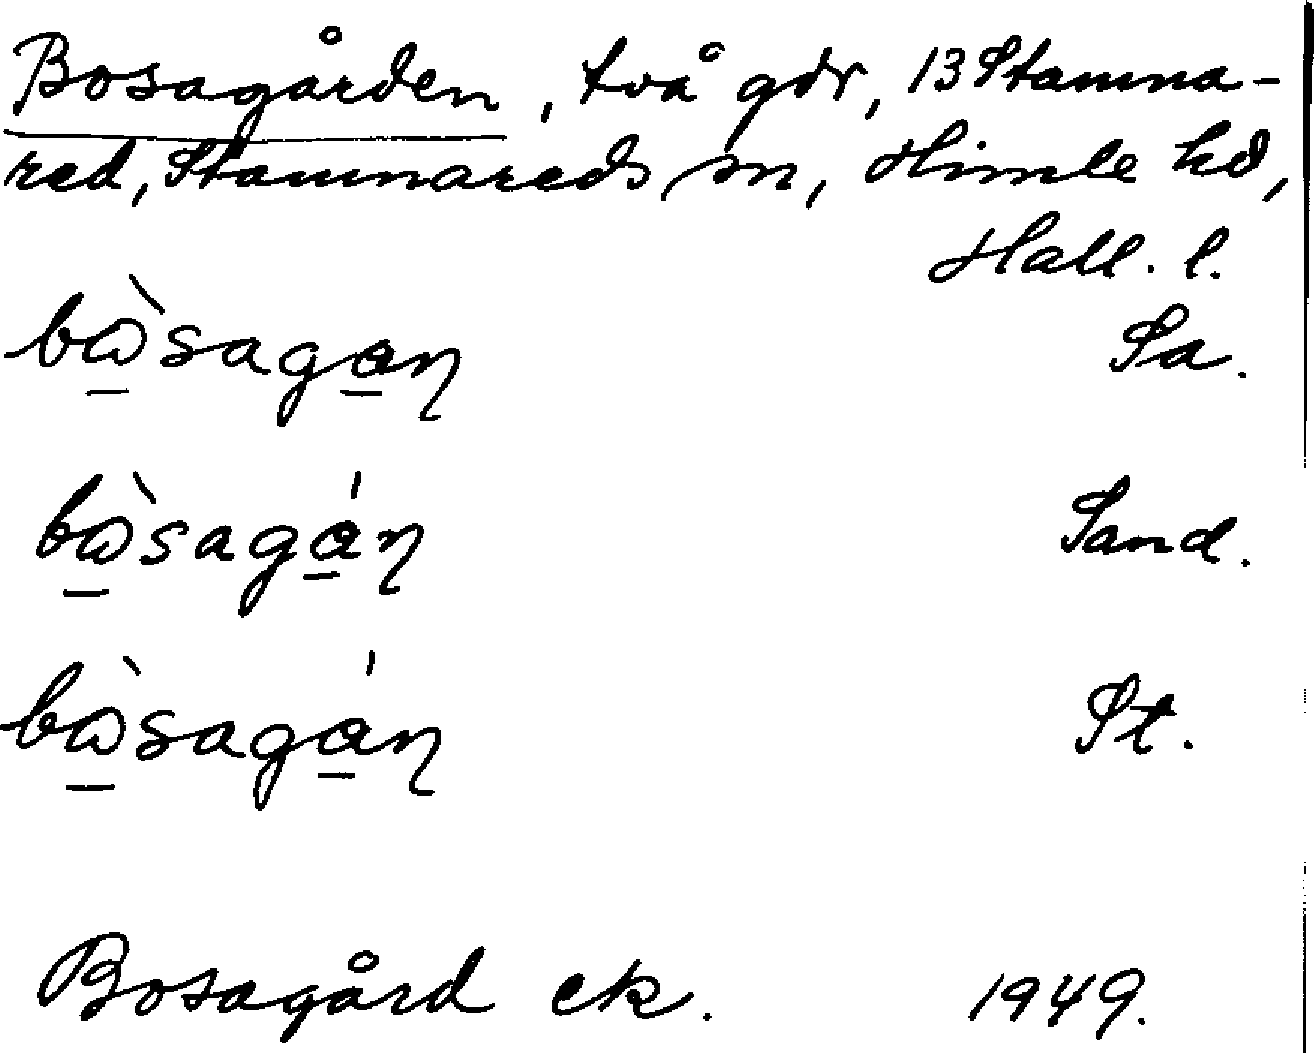 Bosagården, två gdr, 13 Stamna-
red, Stamnareds sn, Himle hd,
Hall. l.
bɷ̠̀saga̠ɳ Sa.
bɷ̠̀saga̠̍ɳ Sand.
bɷ̠̀saga̠̍ɳ St.
Bosagård ek. 1949.